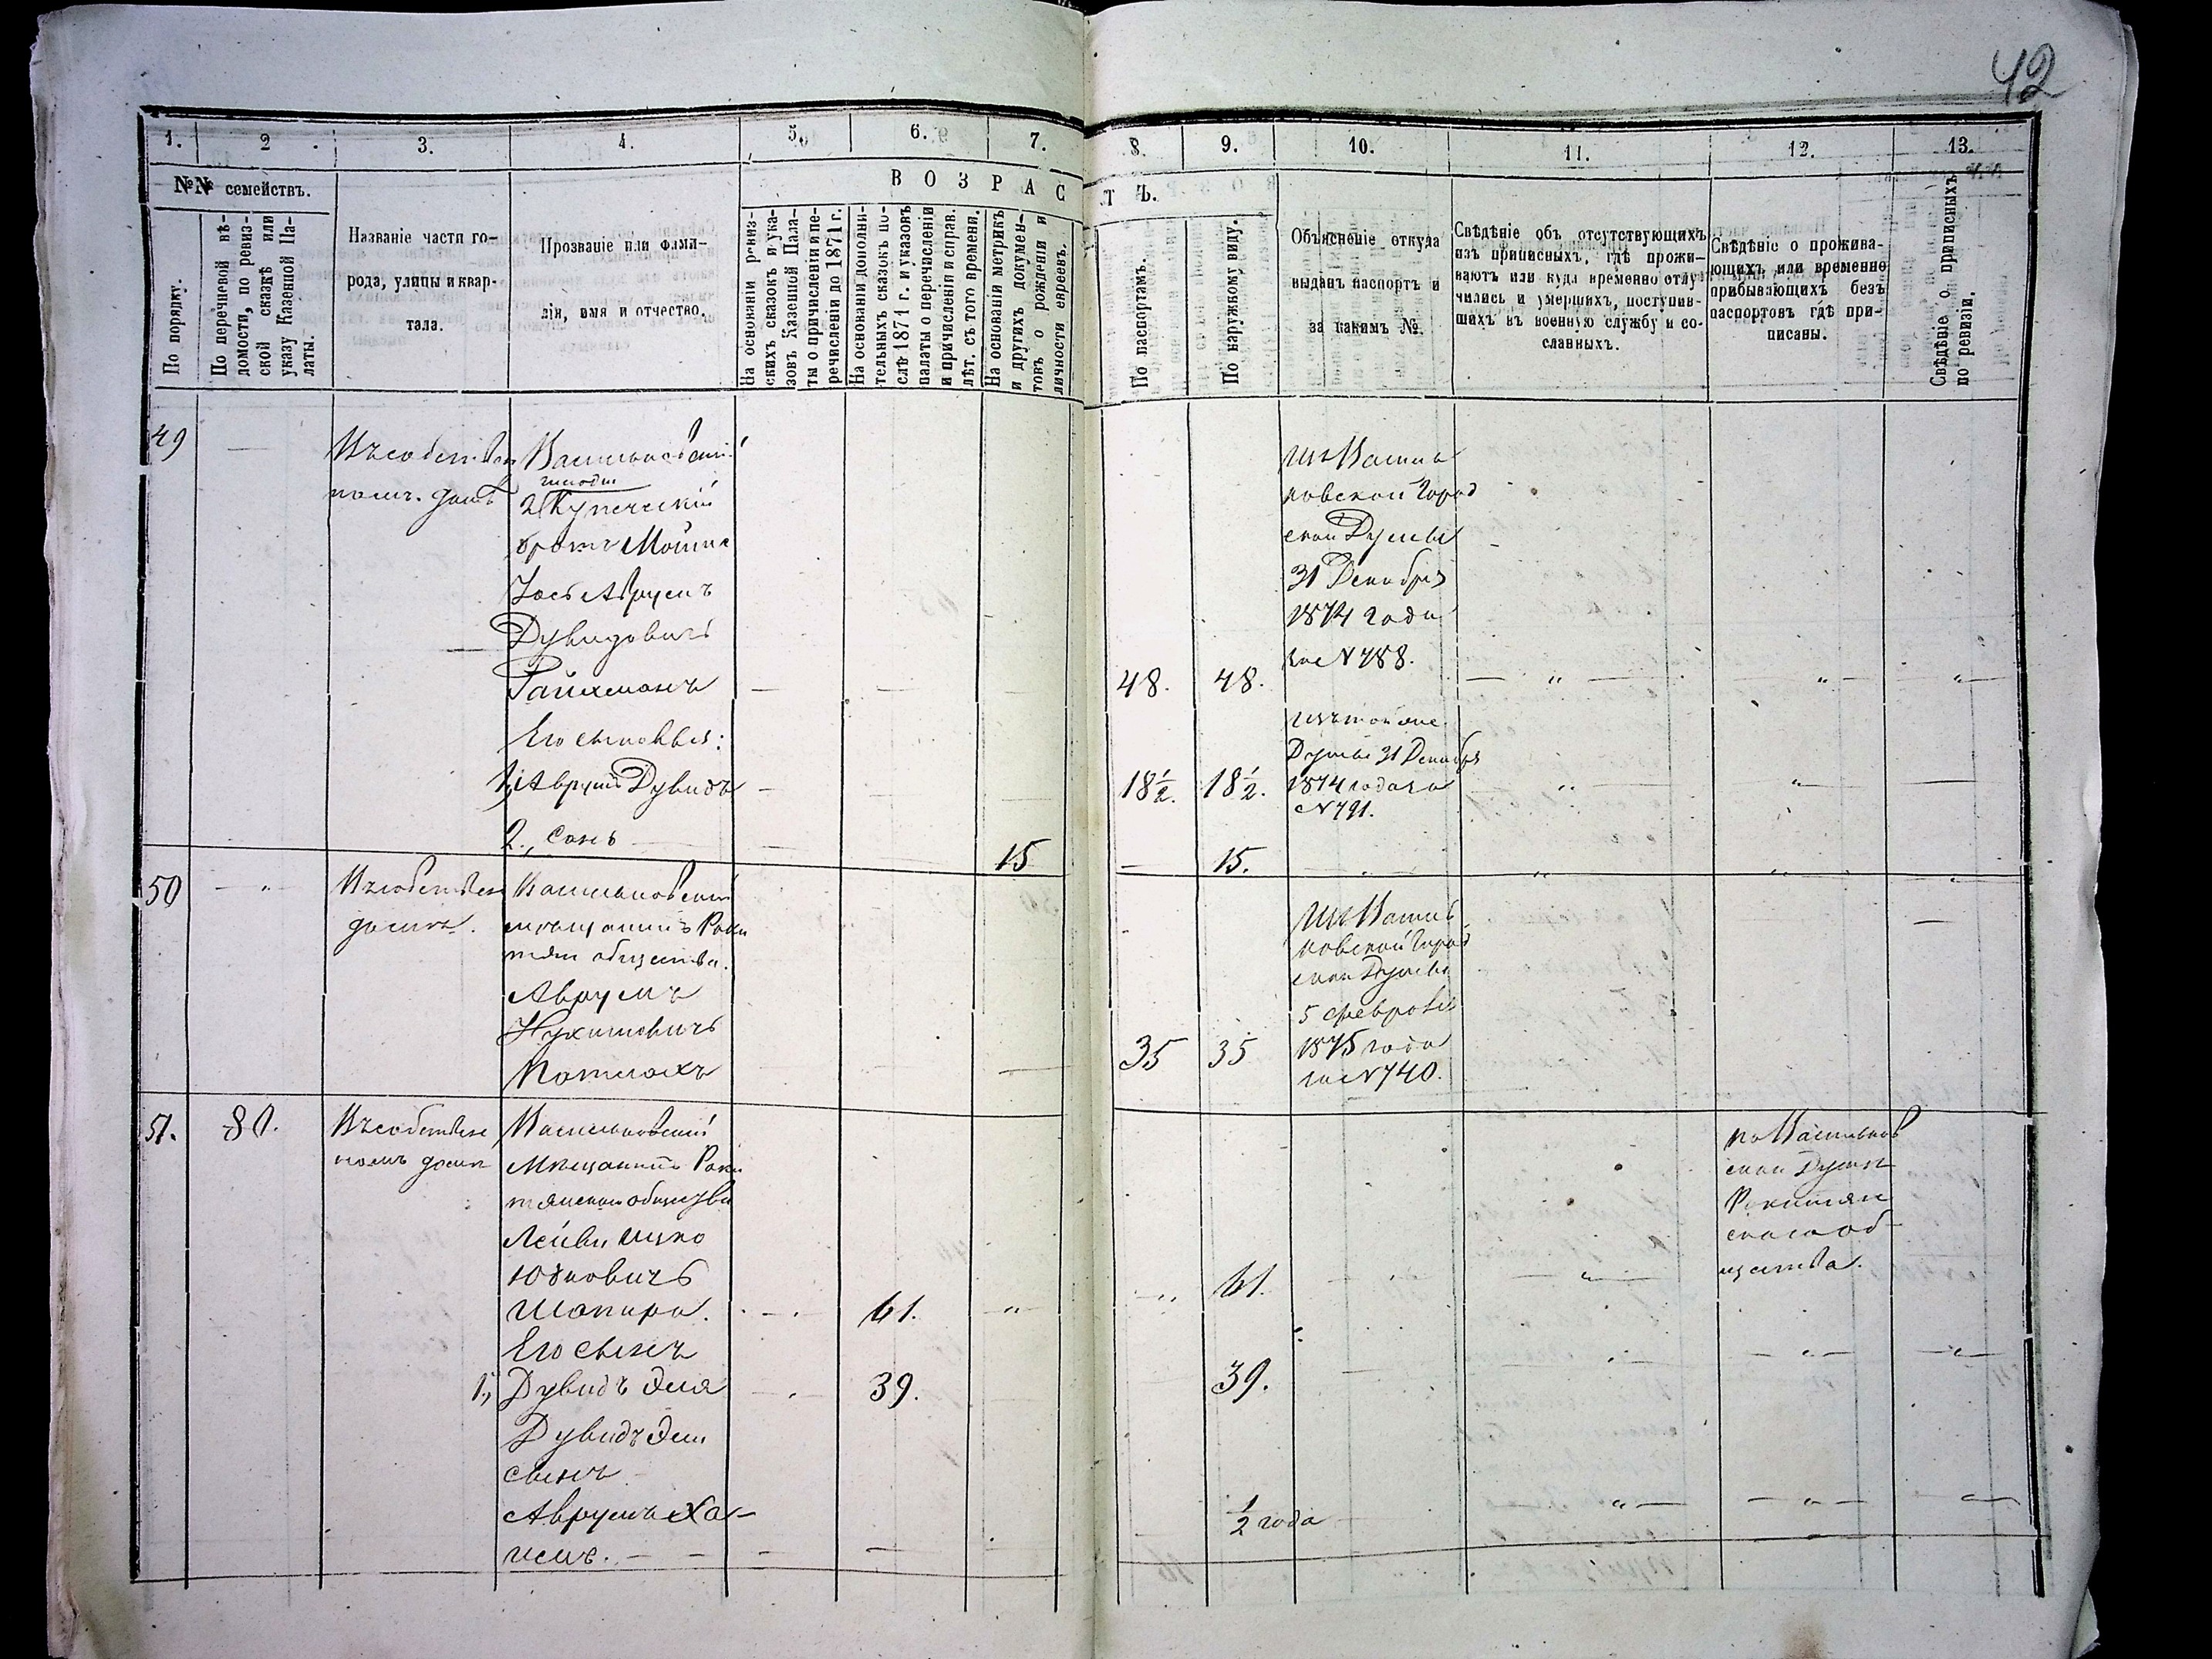 42
1.
2
3.
4.
5.
6.
7.
8.
9.
10.
11.
12.
13.
№№ семействъ.
ВОЗРАС
ТѢ.
По порядку.
По перечневой вѣ-
домости, по ревиз-
ской сказкѣ или
указу Казенной Па-
латы.
Названіе части го-
рода, улицы и квар-
тала.
Прозваніе или фами-
лія, имя и отчество.
На основаніи ревиз-
скихъ сказокъ и ука-
зовъ Казенной Пала-
ты о причисленіи и пе-
речисленіи до 1871 г.
На основаніи дополни-
тельныхъ сказокъ по-
слѣ 1871 г. и указовъ
палаты о перечисленіи
и причисленіи и справ.
лѣт. съ того времени.
На основаніи метрикъ
и другихъ докумен-
товъ о рожденіи и
личности евреевъ.
По паспортамъ.
По наружному виду.
Объясненіе откуда
выданъ паспортъ и
за какимъ №.
Свѣдѣніе объ отсутствующихъ
изъ приписныхъ, гдѣ прожи-
ваютъ или куда временно отлу-
чились и умершихъ, поступив-
шихъ въ военную службу и со-
сланныхъ.
Свѣдѣніе о прожива-
ющихъ или временно
прибывающихъ безъ
паспортовъ гдѣ при-
писаны.
Свѣдѣніе о приписныхъ
по ревизіи.
49
Въ собствен
ном. домѣ
Васильковскій
2 гильдіи
Купеческій
братъ Мошко
Іось Аврумъ
Дувидовичъ
Райхманъ
48.
48.
Изъ Василь
ковской Город
ской Думы
31 Декабря
1874 года
за №788.
Его сыновья:
1, Аврумъ Дувидъ
18½.
18½.
изъ той же
Думы 31 Декабря
1874 года за
№791.
2.,
15
15.
50
Въ собствен
домѣ.
Васильковскій
мѣщанинъ Раки
тян общества.
Аврумъ
Нухимовичъ
Котлякъ
35
35
Изъ Василь
ковской Город
ской Думы
5 февраля
1875 года
за №740.
51.
80.
Въ собствен
номъ домѣ
Васильковскій
Мѣщанинъ Раки
тянскаго общества
Лейви Ицко
Юдковичъ
Шапиро.
61.
61.
по Васильков
ской Думѣ
Ракитян
скаго об-
щества.
Его сынъ
1, Дувидъ Эля
39.
39.
Дувидъ Эли
сынъ
Аврумъ Ха-
имъ.
½ года